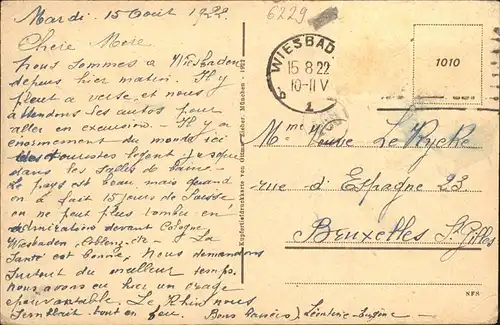 Mardi. 15 Août 1922.
Chère Mère
Nous sommes à Wiesbaden
depuis hier matin. Il y
pleut à verse, et nous
attendons les autos pour
aller en excursion. - Il y a
énormément du monde ici
les touristes logent jusque
dans les salles de bains.
Le pays est beau mais quand
on a fait 15 jours de Suisse,
on ne peut plus tomber en
admiration devant Cologne,
Wiesbaden, Coblenz, etc - La
santé est bonne, nous demandons
surtout du meilleur temps.
nous avons eu hier un orage
épouvantable. Le Rhin nous
semblait tout en feu. Bons baisers
Kupfertiefdruckkarte von Ottmar Zieher, München
6229
WIESBAD
15 8 22
10-11 V
b 1
1010
Mme Veuve Le Rycke
rue d'Espagne 23.
Bruxelles St Gilles
NFS